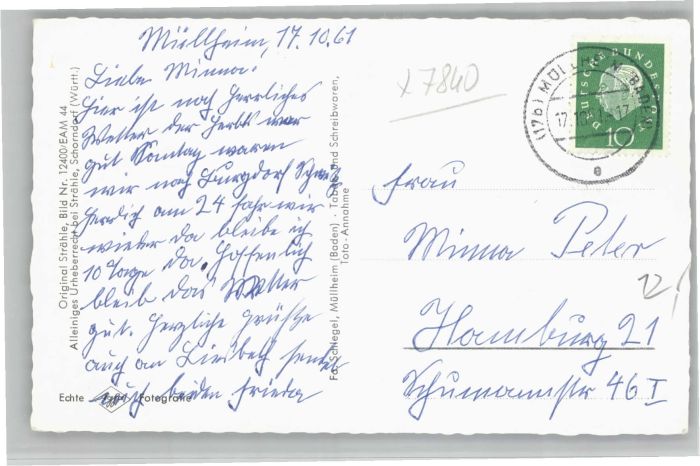 Müllheim, 17.10.61
Liebe Minna.
Hier ist noch herrliches
Wetter der Herbst war
gut Sonntag waren
wir nach Burgdorf
herrlich am 24 fahr wir
wieder da bleibe ich
10 Tage da. Hoffentlich
bleib das Wetter
gut. Herzliche Grüße
auch an Liesbeth sendet
Euch beiden Frieda
Echte Agfa Fotografie
Original Strähle, Bild Nr. 12400/EAM 44
Alleiniges Urheberrecht bei Strähle, Schorndorf (Württ.)
Fa. Schlegel, Müllheim (Baden) - Tabak- und Schreibwaren,
Toto-Annahme
x 7840
(17b) MÜLLHEIM (BADEN)
17.10.61-17
e
DEUTSCHE BUNDESPOST
10
Frau
Minna Peter
12
Hamburg 21
Schumannstr 46 I